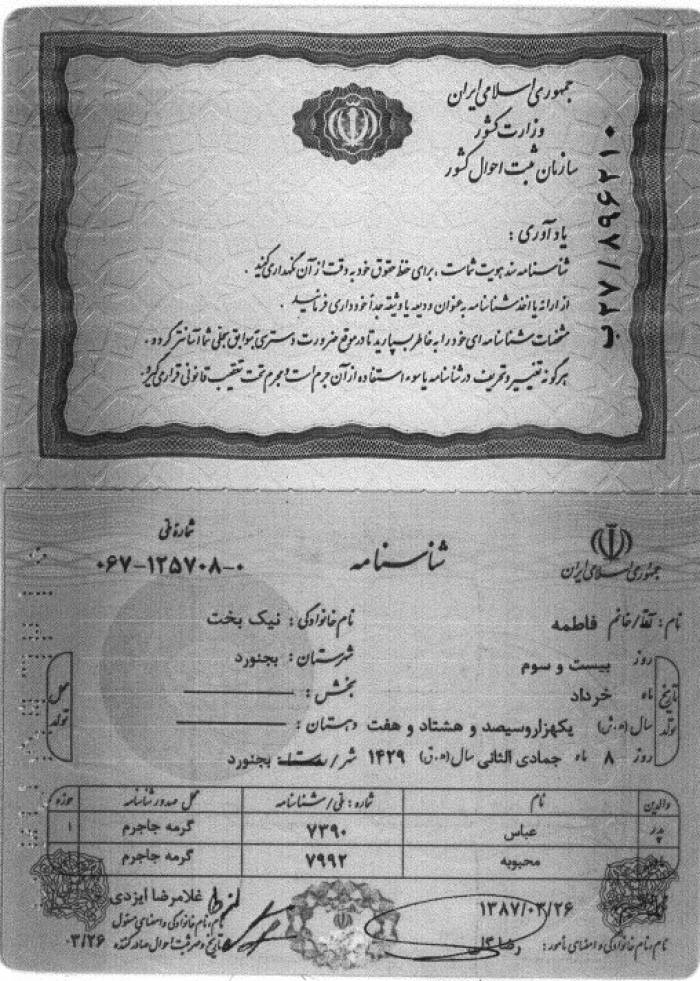 جمهوری اسلامی ایران
وزارت کشور
سازمان ثبت احوال کشور
ب۲۷/۸۹۶۲۱۰
یادآوری :
شناسنامه سند هویت شماست ، برای حفظ حقوق خود به دقت از آن نگهداری کنید .
از ارائه یا اخذ شناسنامه به عنوان ودیعه یا وثیقه جداً خودداری فرمائید .
مشخصات شناسنامه ای خود را به خاطر بسپارید تا در موقع ضرورت دسترسی به سوابق سجلی شما آسانتر گردد .
هرگونه تغییر و تحریف در شناسنامه یا سوء استفاده از آن جرم است و مجرم تحت تعقیب قانونی قرار می گیرد.
جمهوری اسلامی ایران
شناسنامه
شماره ملی
۰۶۷-۱۲۵۷۰۸-۰
نام : آقا/خانم فاطمه
نام خانوادگی : نیک بخت
تاریخ تولد
روز بیست و سوم
ماه خرداد
سال (ه.ش) یکهزاروسیصد و هشتاد و هفت
روز ۸ ماه جمادی الثانی سال (ه.ق) ۱۴۲۹
محل تولد
شهرستان : بجنورد
بخش :
دهستان :
شهر/ : بجنورد
والدین نام شماره : ملی/شناسنامه محل صدور شناسنامه حوزه
پدر عباس ۷۳۹۰ گرمه جاجرم ۱
مادر محبوبه ۷۹۹۲ گرمه جاجرم
۱۳۸۷/۰۳/۲۶
نام،نام خانوادگی و امضای مامور : رضا
غلامرضا ایزدی
نام،نام خانوادگی و امضای مسئول
تاریخ و مهر ثبت احوال صادرکننده ۰۳/۲۶